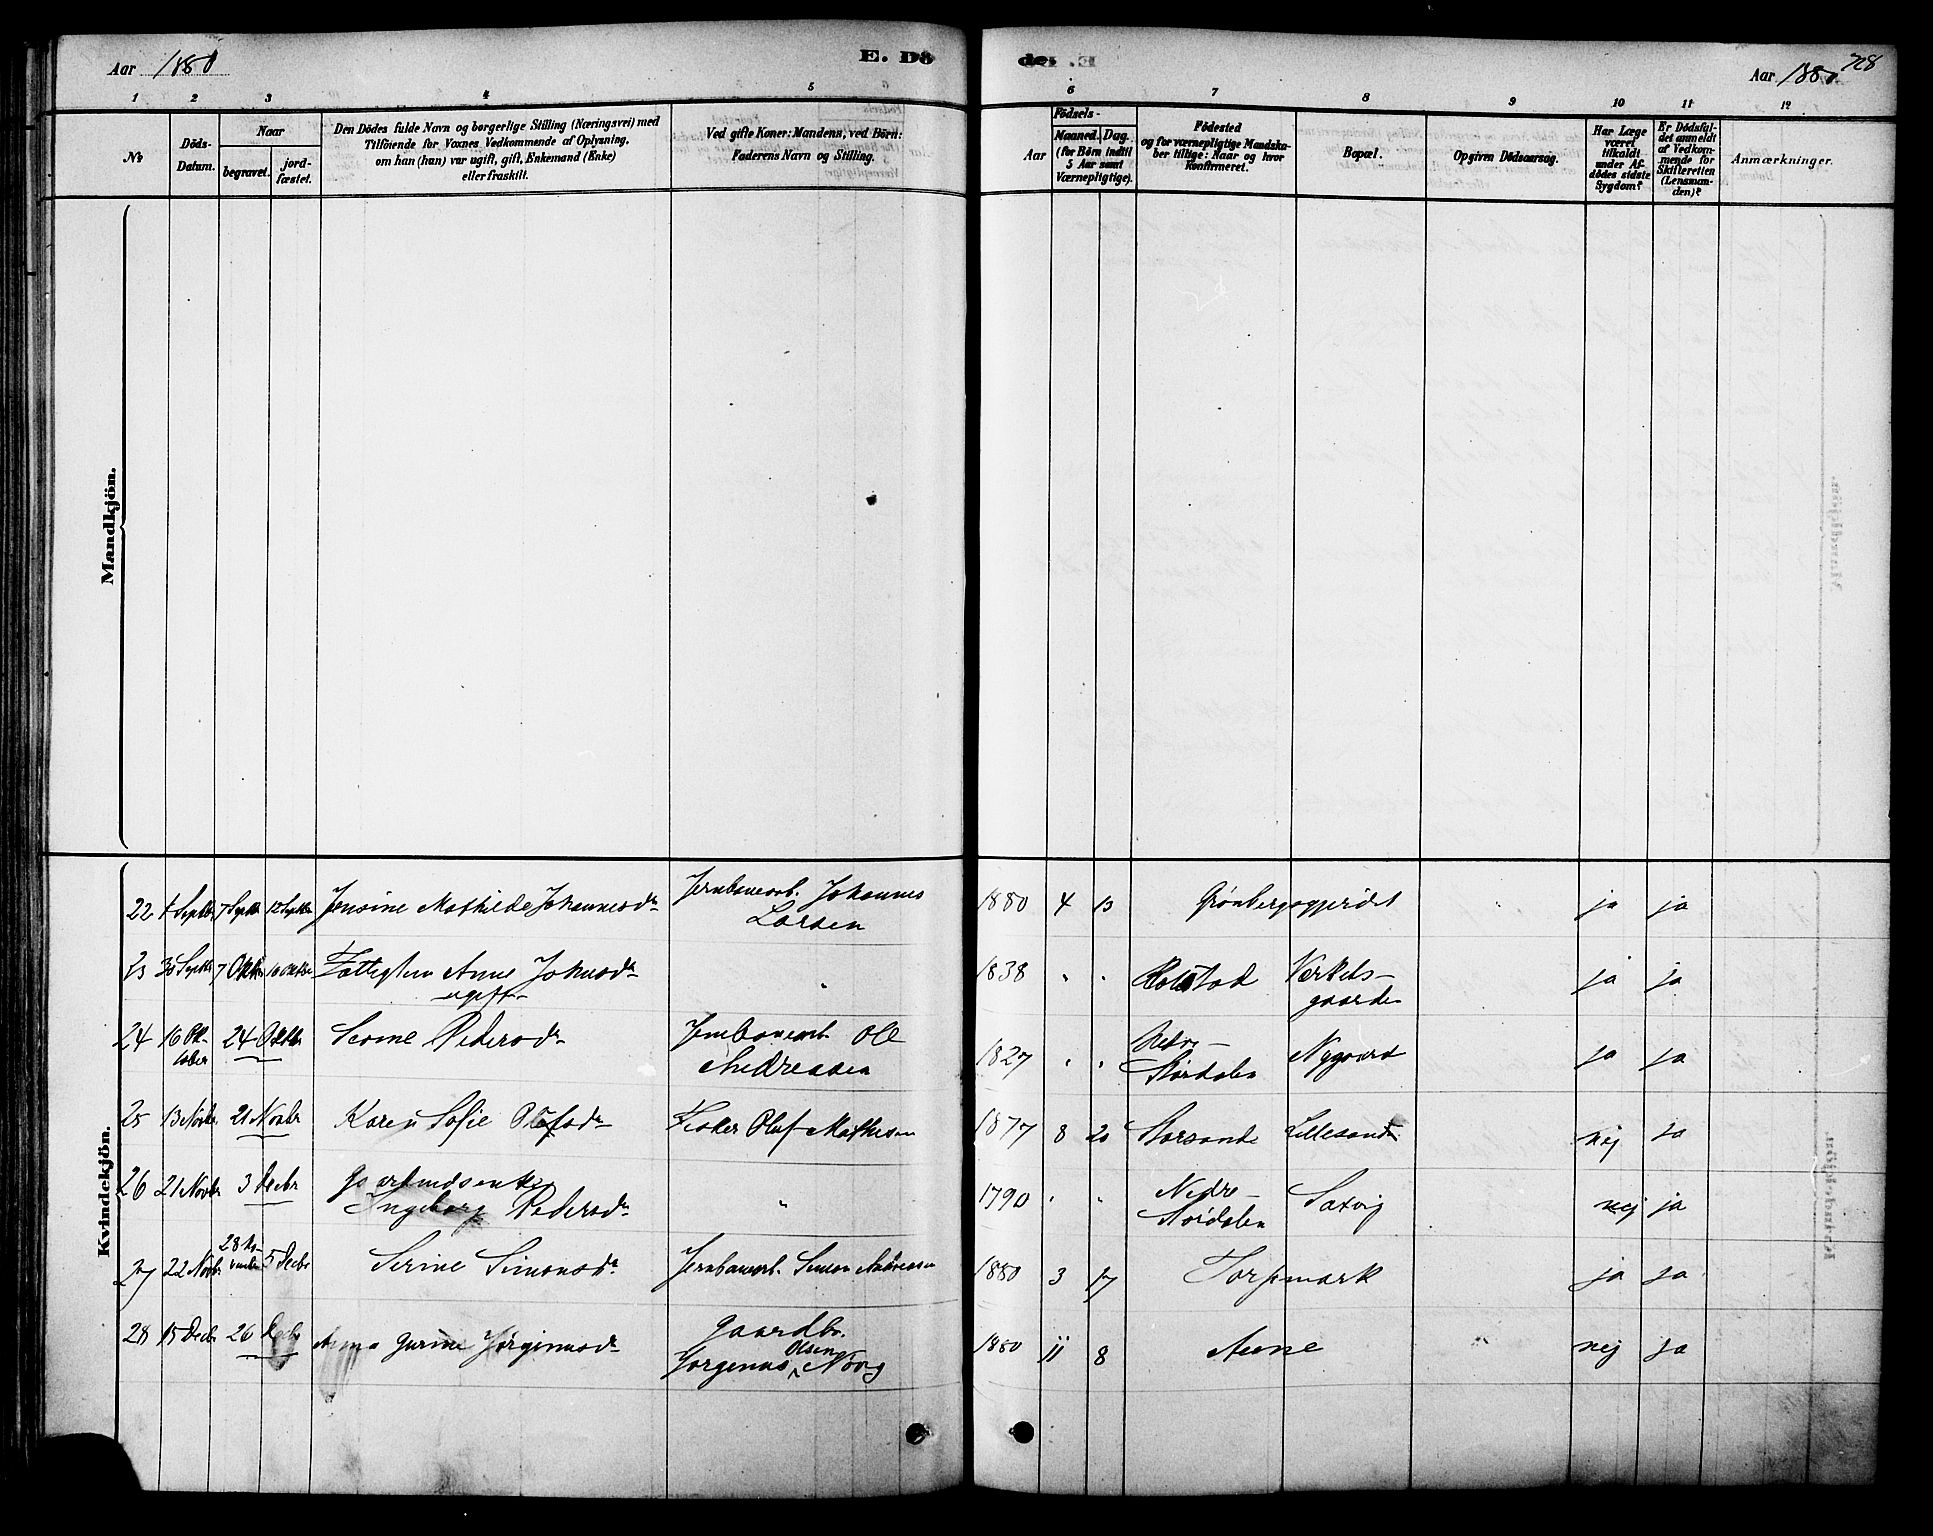 Aar 1880
E. Dö
de. E
Aar 1880
1 2 3 4 5
6 7 8 9 10 11 12
No
Döds-
Datum.
Naar
begravet.
jord-
fæstet.
Den Dödes fulde Navn og borgerlige Stilling (Næringsvei) med
Tilföiende for Voxnes Vedkommende af Oplysning,
om han (hun) var ugift, gift, Enkemand (Enke)
eller fraskilt.
Ved gifte Koner: Mandens, ved Börn:
Faderens Navn og Stilling.
Födsels-
Aar
Maaned. Dag.
(for Börn indtil
5 Aar samt
Værnepligtige).
Födested
og for værnepligtige Mandska-
ber tillige: Naar og hvor
Konfirmeret.
Bopæl.
Opgiven Dödsaarsag.
Har Læge
været
tilkaldt
under Af-
dödes sidste
Sygdom?
Er Dödsfal-
det anmeldt
af Vedkom-
mende for
Skifteretten
(Lensman-
den)?
Anmærkninger.
Mandkjön.
Kvindekjön.
22 1 Septbr 7 Septbr 12 Septbr Jensine Mathilde Johannesdr Jernbanearb. Johannes
Larsen 1880 4 13 Grönbergsgjerdet ja ja
23 30 Septbr 7 Oktbr 10 Oktbr Fattiglem Anne Johnsdr
ugift " 1838 " " Holstad Verkets-
gaarden ja ja
24 16 Ok-
tober 24 Oktbr Pedersdr Jernbanearb Ole
Andreasen 1827 " " Nedre-
Stördalen Nygaard ja ja
25 13 Novbr 21 Novbr Karen Sofie Olafsdr Fisker Olaf Mathisen 1877 8 20 Storsande Lillesand nej ja
26 21 Novbr 3 Decbr Gaardmandsenke
Ingeborg Pedersdr " 1790 " " Nedre-
Stördalen Saxvig nej ja
27 22 Novbr 28 No-
vember 5 Decbr Serine Simonsdr Jernbanearb. Simon Andreasen 1880 3 17 Torpmark ja ja
28 15 Decbr 26 Decbr Anna Gurine Jörginusdr Gaardbr.
Jörgenus Olsen Növig 1880 11 8 Aune nej ja